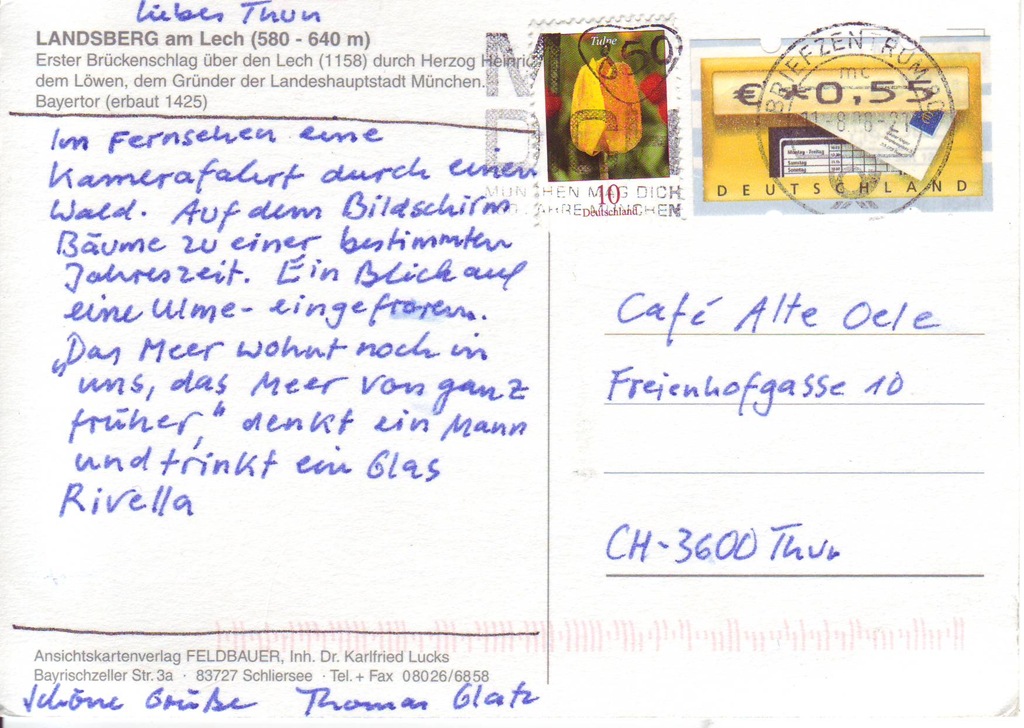 Liebes Thun
LANDSBERG am Lech (580 - 640 m)
Erster Brückenschlag über den Lech (1158) durch Herzog Heinric
dem Löwen, dem Gründer der Landeshauptstadt München.
Bayertor (erbaut 1425)
Im Fernsehen eine
Kamerafahrt durch einen
Wald. Auf dem Bildschirm
Bäume zu einer bestimmten
Jahreszeit. Ein Blick auf
eine Ulme - eingefroren.
„Das Meer wohnt noch in
uns, das Meer von ganz
früher", denkt ein Mann
und trinkt ein Glas
Rivella
Ansichtskartenverlag FELDBAUER, Inh. Dr. Karlfried Lucks
Bayrischzeller Str. 3a · 83727 Schliersee · Tel. + Fax 08026/6858
Schöne Grüße Thomas Glatz
Tulpe
850
MÜNCHEN MAG DICH
JAHRE MÜNCHEN
10
Deutschland
BRIEFZENTRUM
mc
€ *0,55
Montag - Freitag
Samstag
Sonntag
DEUTSCHLAND
Café Alte Oele
Freienhofgasse 10
CH-3600 Thun